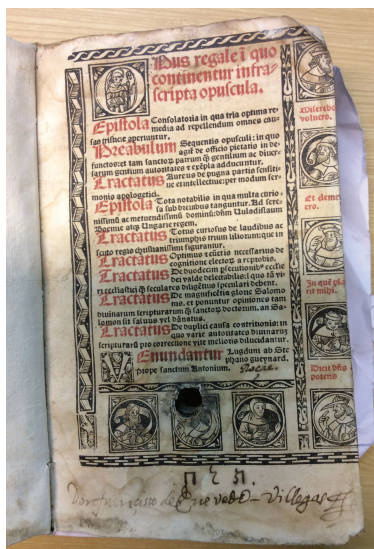 Opus regale ī quo
continentur infra-
scripta opuscula.
Epistola Consolatoria in qua tria optima re-
media ad repellendum omnes cau-
sas tristicie aperiuntur.
Preabulum Sequentis opusculi: in quo
agit̄ de officio pietatis in de-
functos: et tam sanctoꝝ patrum ꝙ gentilium ac diuer-
sarum gentium autoritates et exēpla adducuntur.
Tractatus Aureus de pugna partis sensiti-
ue et intellectiue: per modum ser-
monis apologetici.
Epistola Tota notabilis in qua multa curio-
sa sub breuibus tanguntur. Ad sere-
nissimū ac metuendissimū dominū: dn̄m Uladislaum
Boemie atqꝫ Ungarie regem.
Tractatus Totus curiosus de laudibus ac
triumphis trium liliorum: que in
scuto regis christianissimi figurantur.
Tractatus Optimus et vtiꝯ necessarius de
cognitione electoꝝ a reprobis.
Tractatus De duodecim ꝑsecutionibꝰ ecclesie
dei valde delectabilis: ī quo tā vi-
ri ecclesiastici ꝙ seculares diligētius speculari debent.
Tractatus De magnificētia glorie Salomo
nis. et ponuntur opiniones tam
diuinarum scripturarum ꝙ sanctoꝝ doctorum. an Sa-
lomon sit saluus vel dānatus.
Tractatus De duplici causa contritionis: in
quo varie autoritates diuinarū
scripturarū pro correctione vite melioris dilucidantur.
Venundantur Lugduni ab Ste
phano gueynard.
prope sanctum Antonium.
Miserebo
voluero.
Et deme
ero.
In que pla
ris mihi.
Dicit dn̄s
potens
don francisco de queuedo - Villegas